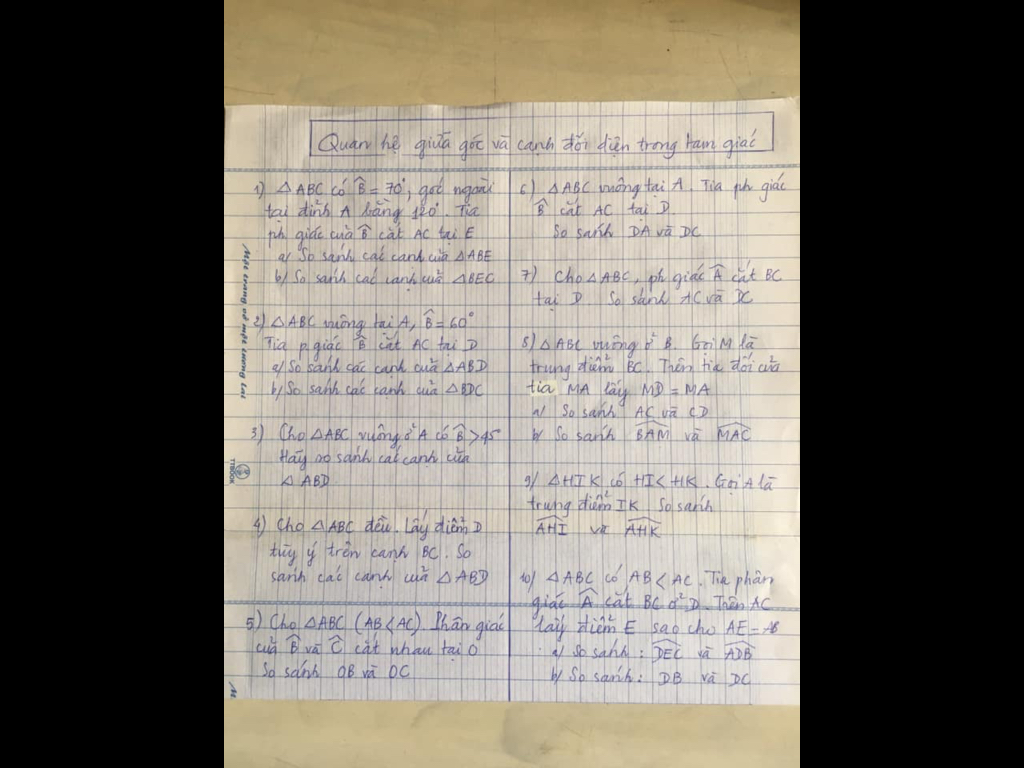 Quan hệ giữa góc và cạnh đối diện trong tam giác
1) △ABC có B̂ = 70°, góc ngoài
tại đỉnh A bằng 120°. Tia
ph giác của B̂ cắt AC tại E
a/ So sánh các cạnh của △ABE
b/ So sánh các cạnh của △BEC
2) △ABC vuông tại A, B̂ = 60°
Tia p.giác B̂ cắt AC tại D
a/ So sánh các cạnh của △ABD
b/ So sánh các cạnh của △BDC
3) Cho △ABC vuông ở A có B̂ > 45
Hãy so sánh các cạnh của
△ABD
4) Cho △ABC đều. Lấy điểm D
tùy ý trên cạnh BC. So
sánh các cạnh của △ABD
5) Cho △ABC (AB < AC). Phân giác
của B̂ và Ĉ cắt nhau tại O
So sánh OB và OC
6) △ABC vuông tại A. Tia ph giác
B̂ cắt AC tại D.
So sánh DA và DC
7) Cho △ABC, ph giác Â cắt BC
tại D. So sánh AC và DC
8) △ABC vuông ở B. Gọi M là
trung điểm BC. Trên tia đối của
tia MA lấy MD = MA
a/ So sánh AC và CD
b/ So sánh BAM và MAC
9) △HIK có HI < HK. Gọi A là
trung điểm IK So sánh
AHI và AHK
10) △ABC có AB < AC. Tia phân
giác Â cắt BC ở D. Trên AC
lấy điểm E sao cho AE = AB
a/ So sánh: DEC và ADB
b/ So sánh: DB và DC
TTBOOK